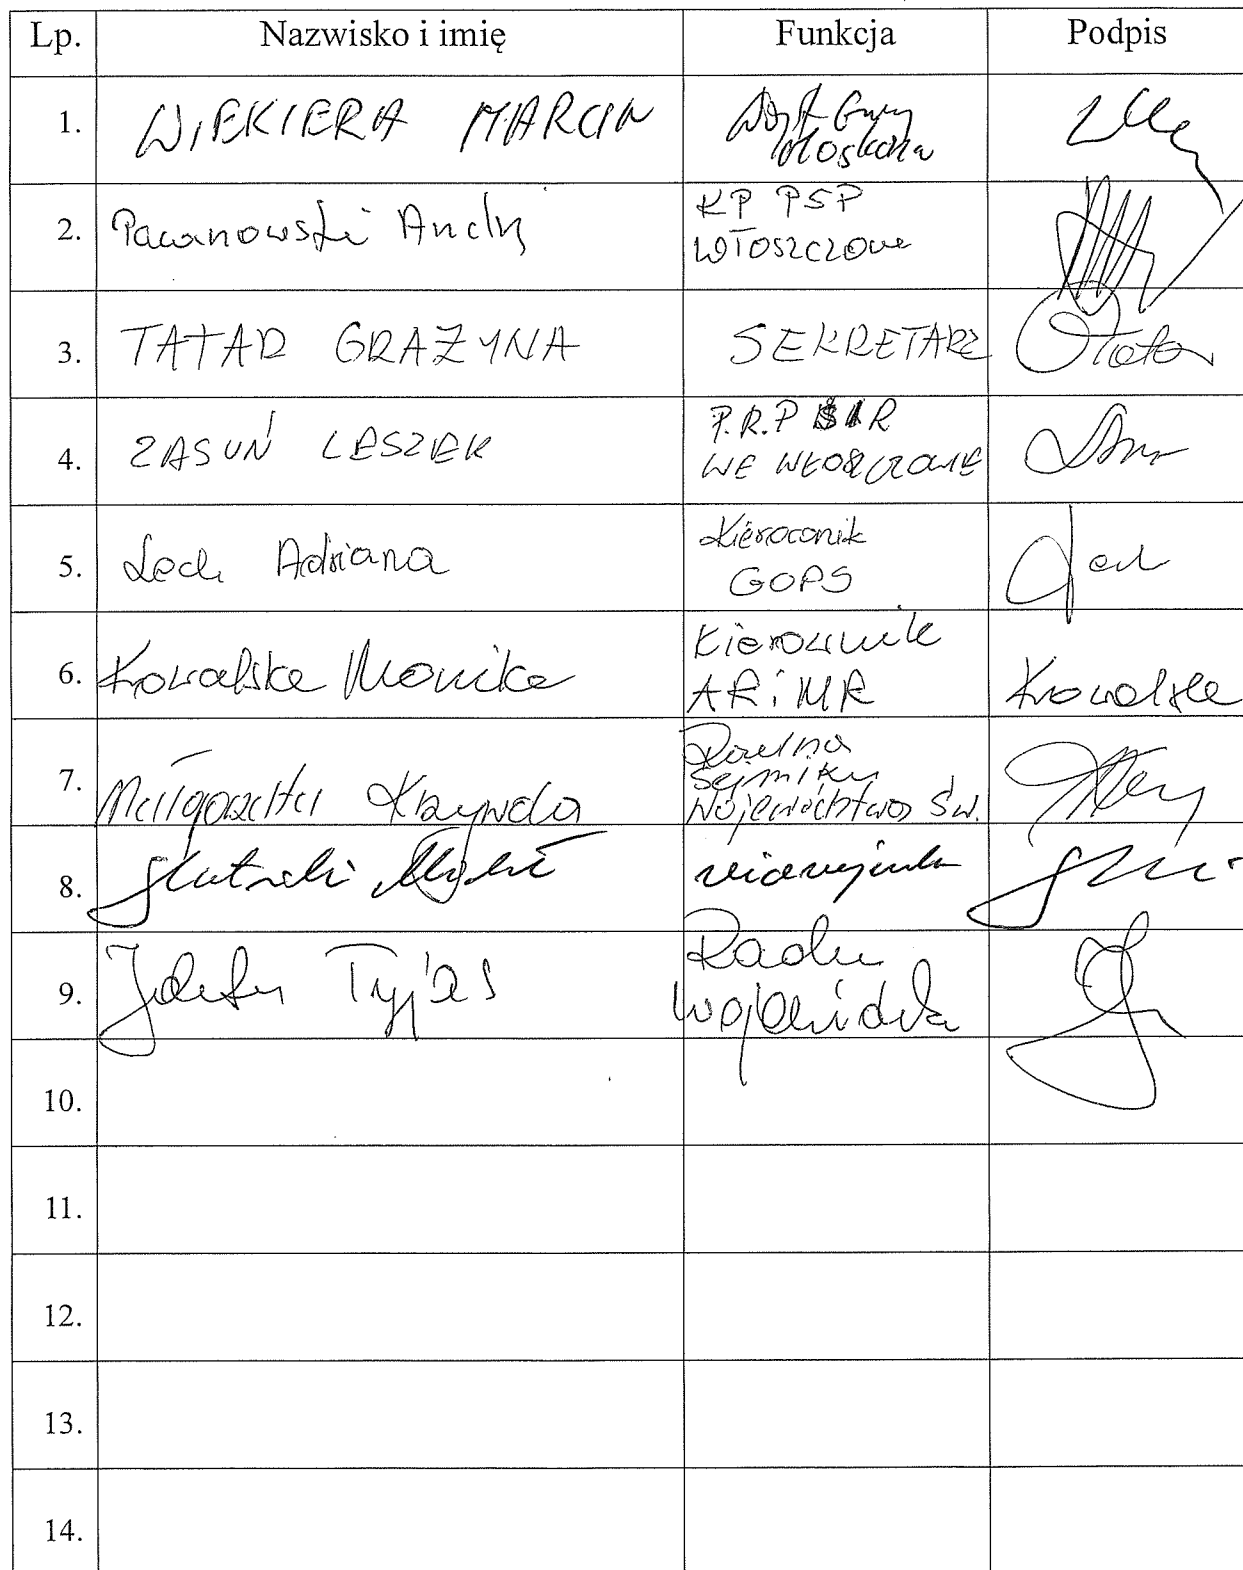 Lp. Nazwisko i imię Funkcja Podpis
1. WIEKIERA MARCIN Wójt Gminy
2. Pacanowski Andrzej KP PSP
WŁOSZCZOWA
3. TATAR GRAŻYNA SEKRETARZ
4. ZASUŃ LESZEK P.R.P R
WE WŁOSZCZOWIE
5. Lech Adriana Kierownik
GOPS
6. Kowalska Monika Kierownik
ARiMR Kowalska
7. Małgorzata Krzywda Radna
Sejmiku
Województwa Św.
8. 
9. Jolanta Tyjas Radna
Wojewódzka
10.
11.
12.
13.
14.